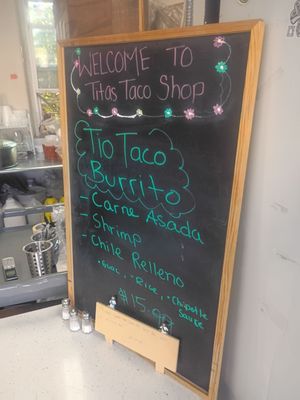 WELCOME TO
Titas Taco Shop
Tio Taco
Burrito
- Carne Asada
- Shrimp
- Chile Relleno
• Guac, • Rice, • Chipotle
Sauce
$15.99